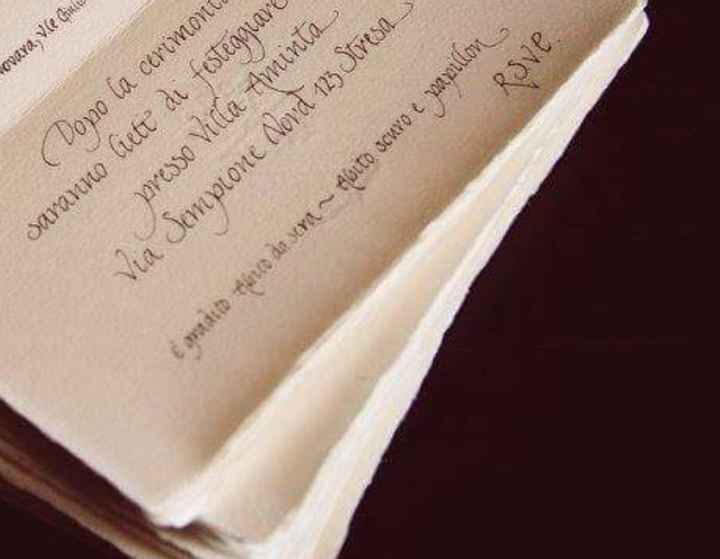 Novara, V.le Giulio
Dopo la cerimonia
saranno liete di festeggiare
presso Villa Aminta
Via Sempione Nord 123 Stresa
è gradito Abito da sera ~ Abito scuro e papillon
RSVP.